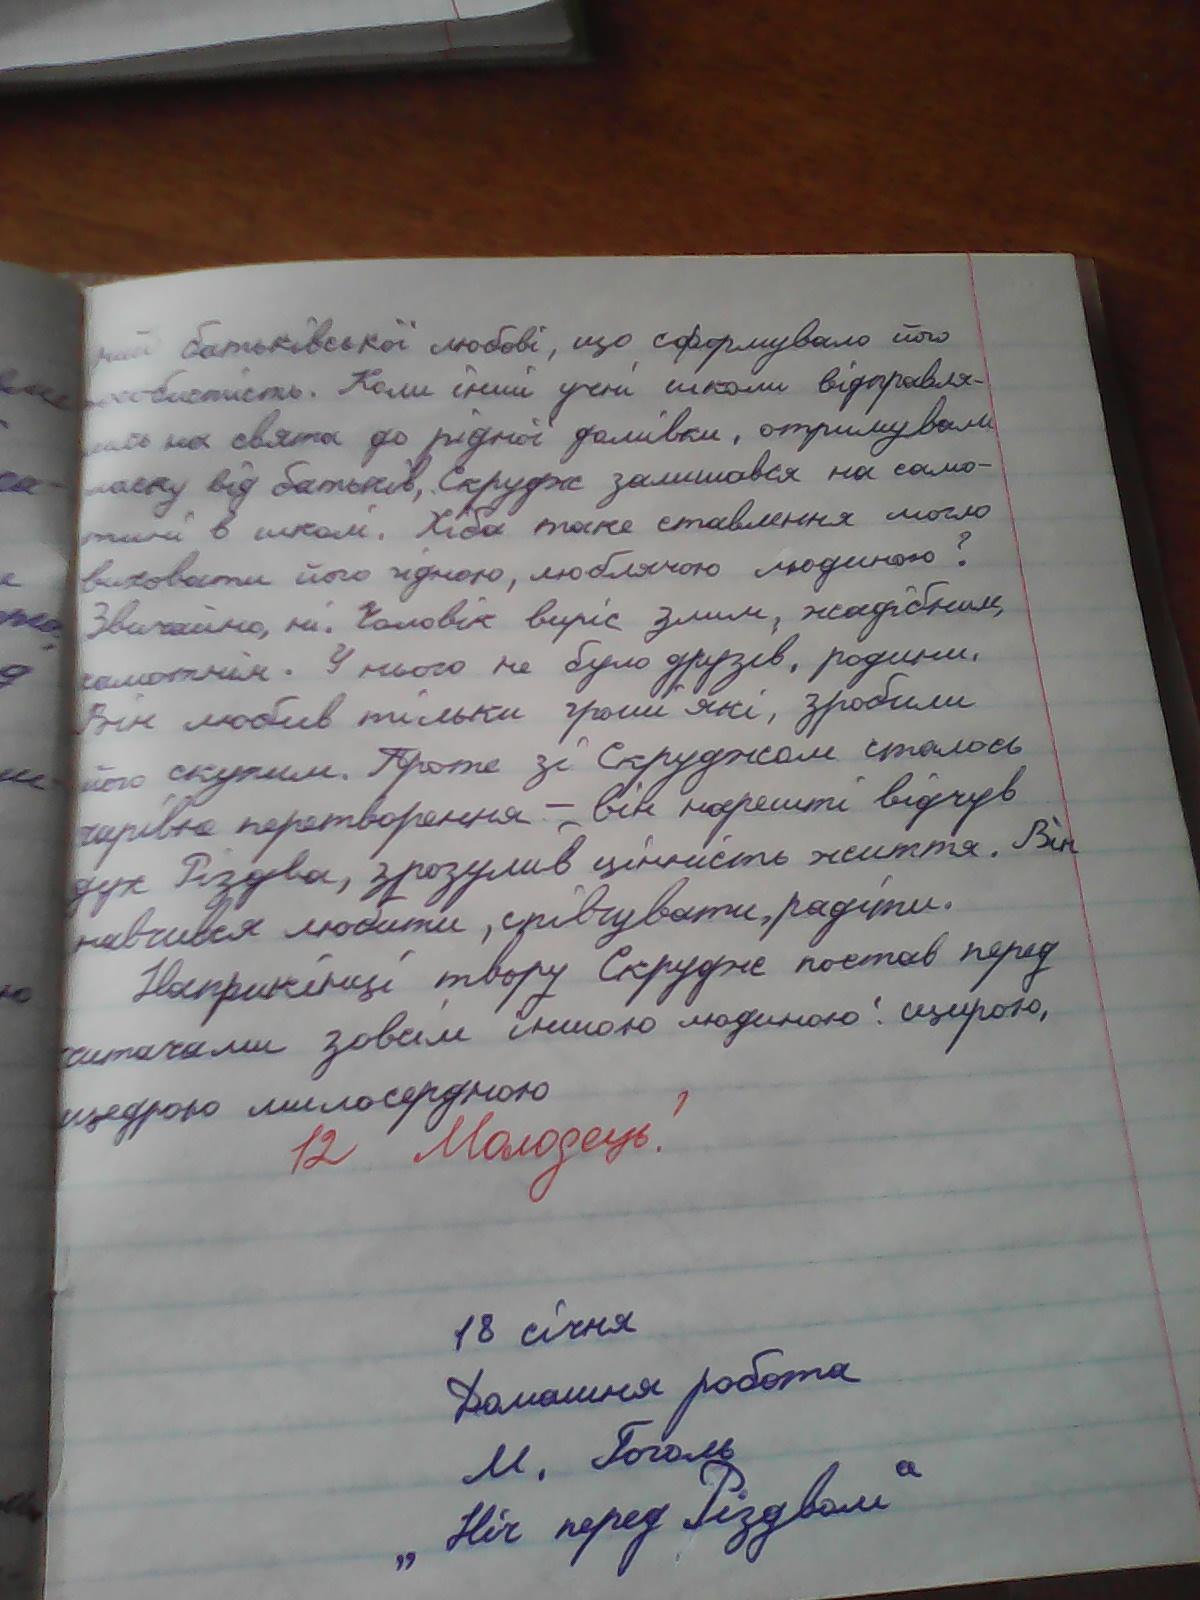 батьківської любові, що сформувало його
особистість. Коли інші учні школи відправля-
лись на свята до рідної домівки, отримували
ласку від батьків, Скрудж залишався на само-
тині в школі. Хіба таке ставлення могло
виховати його гідною, люблячою людиною?
Звичайно, ні. Чоловік виріс злим, жадібним,
самотнім. У нього не було друзів, родини.
Він любив тільки гроші які, зробили
його скупим. Проте зі Скруджом сталось
чарівне перетворення – він нарешті відчув
дух Різдва, зрозумів цінність життя. Він
навчився любити, співчувати, радіти.
Наприкінці твору Скрудж постав перед
читачами зовсім іншою людиною: щирою,
щедрою милосердною
12 Молодець!
18 січня
Домашня робота
М. Гоголь
„Ніч перед Різдвом“